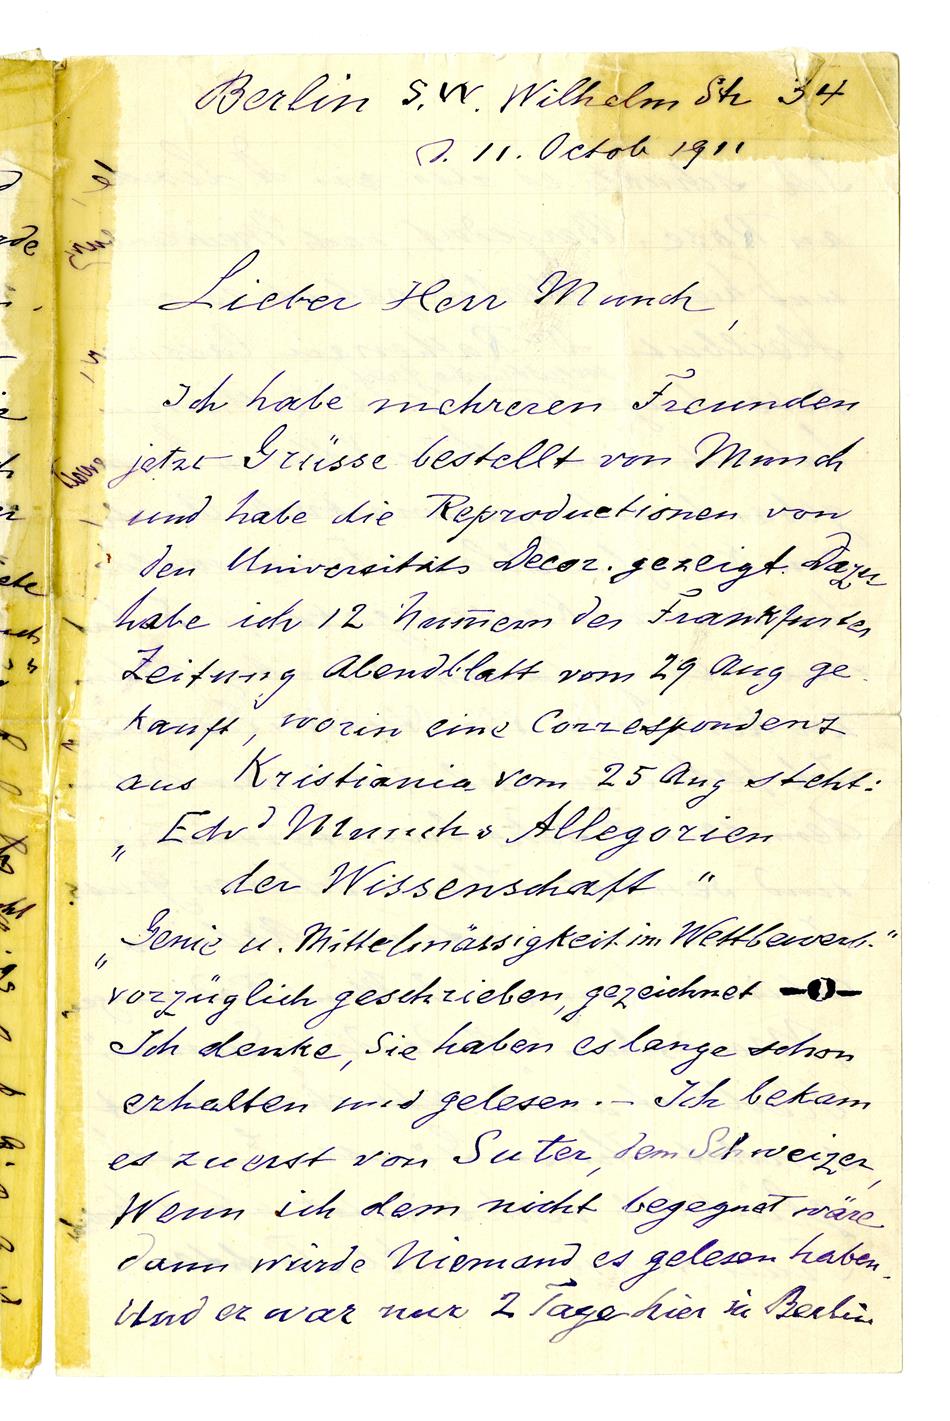 Berlin S.W. Wilhelm Str 34
d. 11. Octob 1911
Lieber Herr Munch,
Ich habe mehreren Freunden
jetzt Grüsse bestellt von Munch
und habe die Reproductionen von
den Universitäts Decor. gezeigt. Dazu
habe ich 12 Num̄ern der Frankfurter
Zeitung Abendblatt vom 29 Aug ge-
kauft, worin eine Correspondenz
aus Kristiania vom 25 Aug steht:
„Edvd Munchs Allegorien
der Wissenschaft"
„Genie u. Mittelmässigkeit im Wettbewerb."
vorzüglich geschrieben, gezeichnet —O—
Ich denke, Sie haben es lange schon
erhalten und gelesen. — Ich bekam
es zuerst von Suter, dem Schweizer,
Wenn ich dem nicht begegnet wäre
dann würde Niemand es gelesen haben.
Und er war nur 2 Tage hier in Berlin